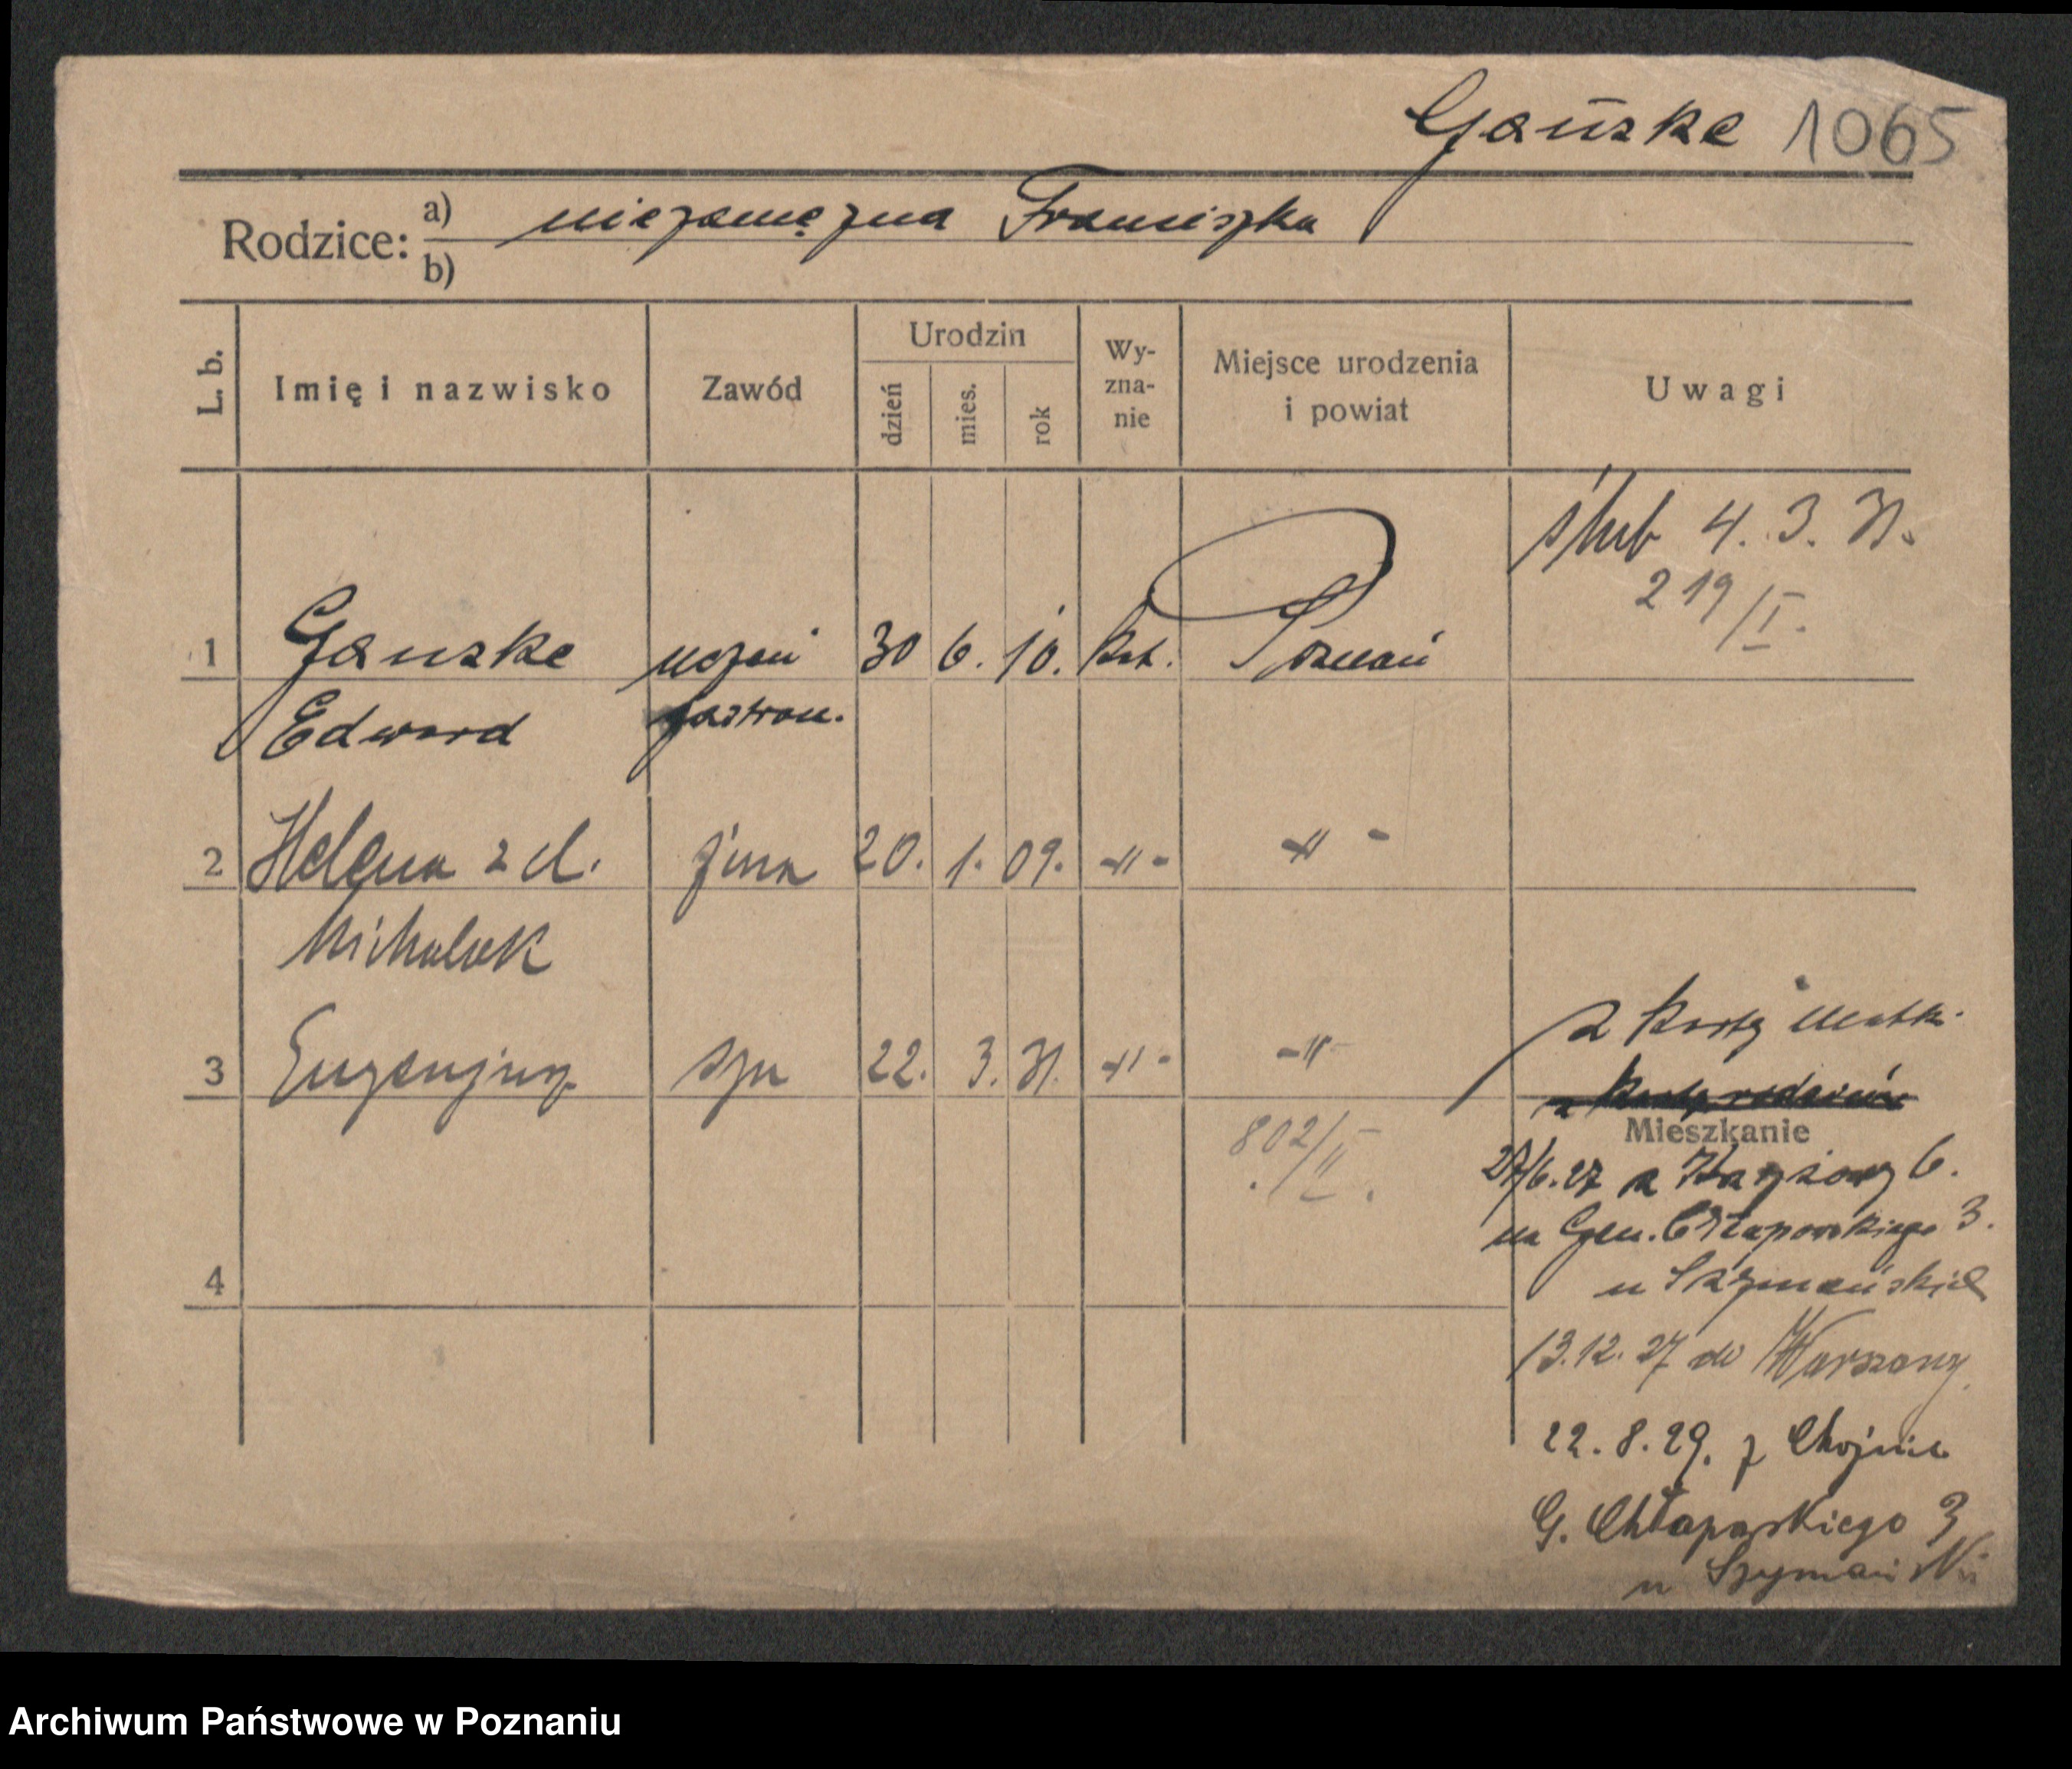 Gańske 1065
Rodzice: a) niezamężna Franciszka
b)
L. b. Imię i nazwisko Zawód Urodzin dzień mies. rok Wy-zna-nie Miejsce urodzenia i powiat Uwagi
ślub 4. 3. 31.
219/I.
1 Ganske uczeń 30 6. 10. kat. Poznań
Edward gastron.
2 Helena z d. żona 20. 1. 09. -"- -"-
Michalak
3 Eugenjusz syn 22. 3. 31. -"- -"-
z karty matki
z karty rodziców
802/II.
Mieszkanie
27/6.27 z 6.
na Gen. Chłapowskiego 3.
u Szymańskich
4
13.12.27 do Warszawy
22. 8. 29. z Chojnic
G. Chłapowskiego 3
u Szymański
Archiwum Państwowe w Poznaniu